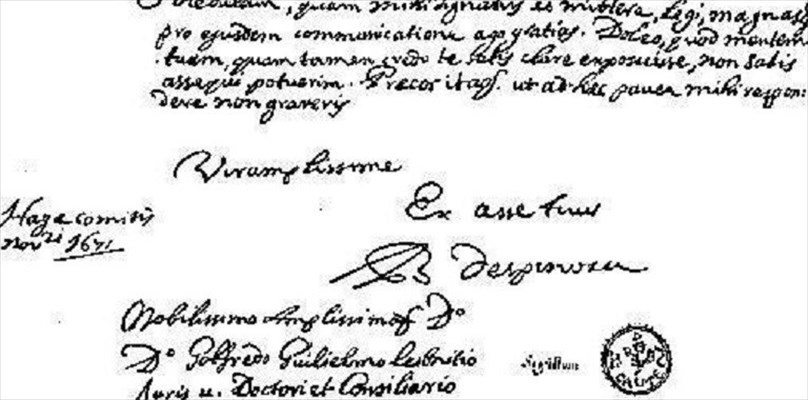 quam mihi dignatus es mittere, legi, magnasq
pro ejusdem communicatione ago gratias. Doleo, quod mentem
tuam, quam tamen credo te satis clare exposuisse, non satis
assequi potuerim. Precor itaq ut ad hæc pauca mihi respon:
dere non graveris
Vir amplissime
Ex asse tuus
Hagæ comitis
novri 1671
B despinoza
Nobilissimo Amplissimoq Do
Do Gotfredo Guilielmo Leibnitio
Juris u. Doctori et Consiliario
Sigillum
CAUTE